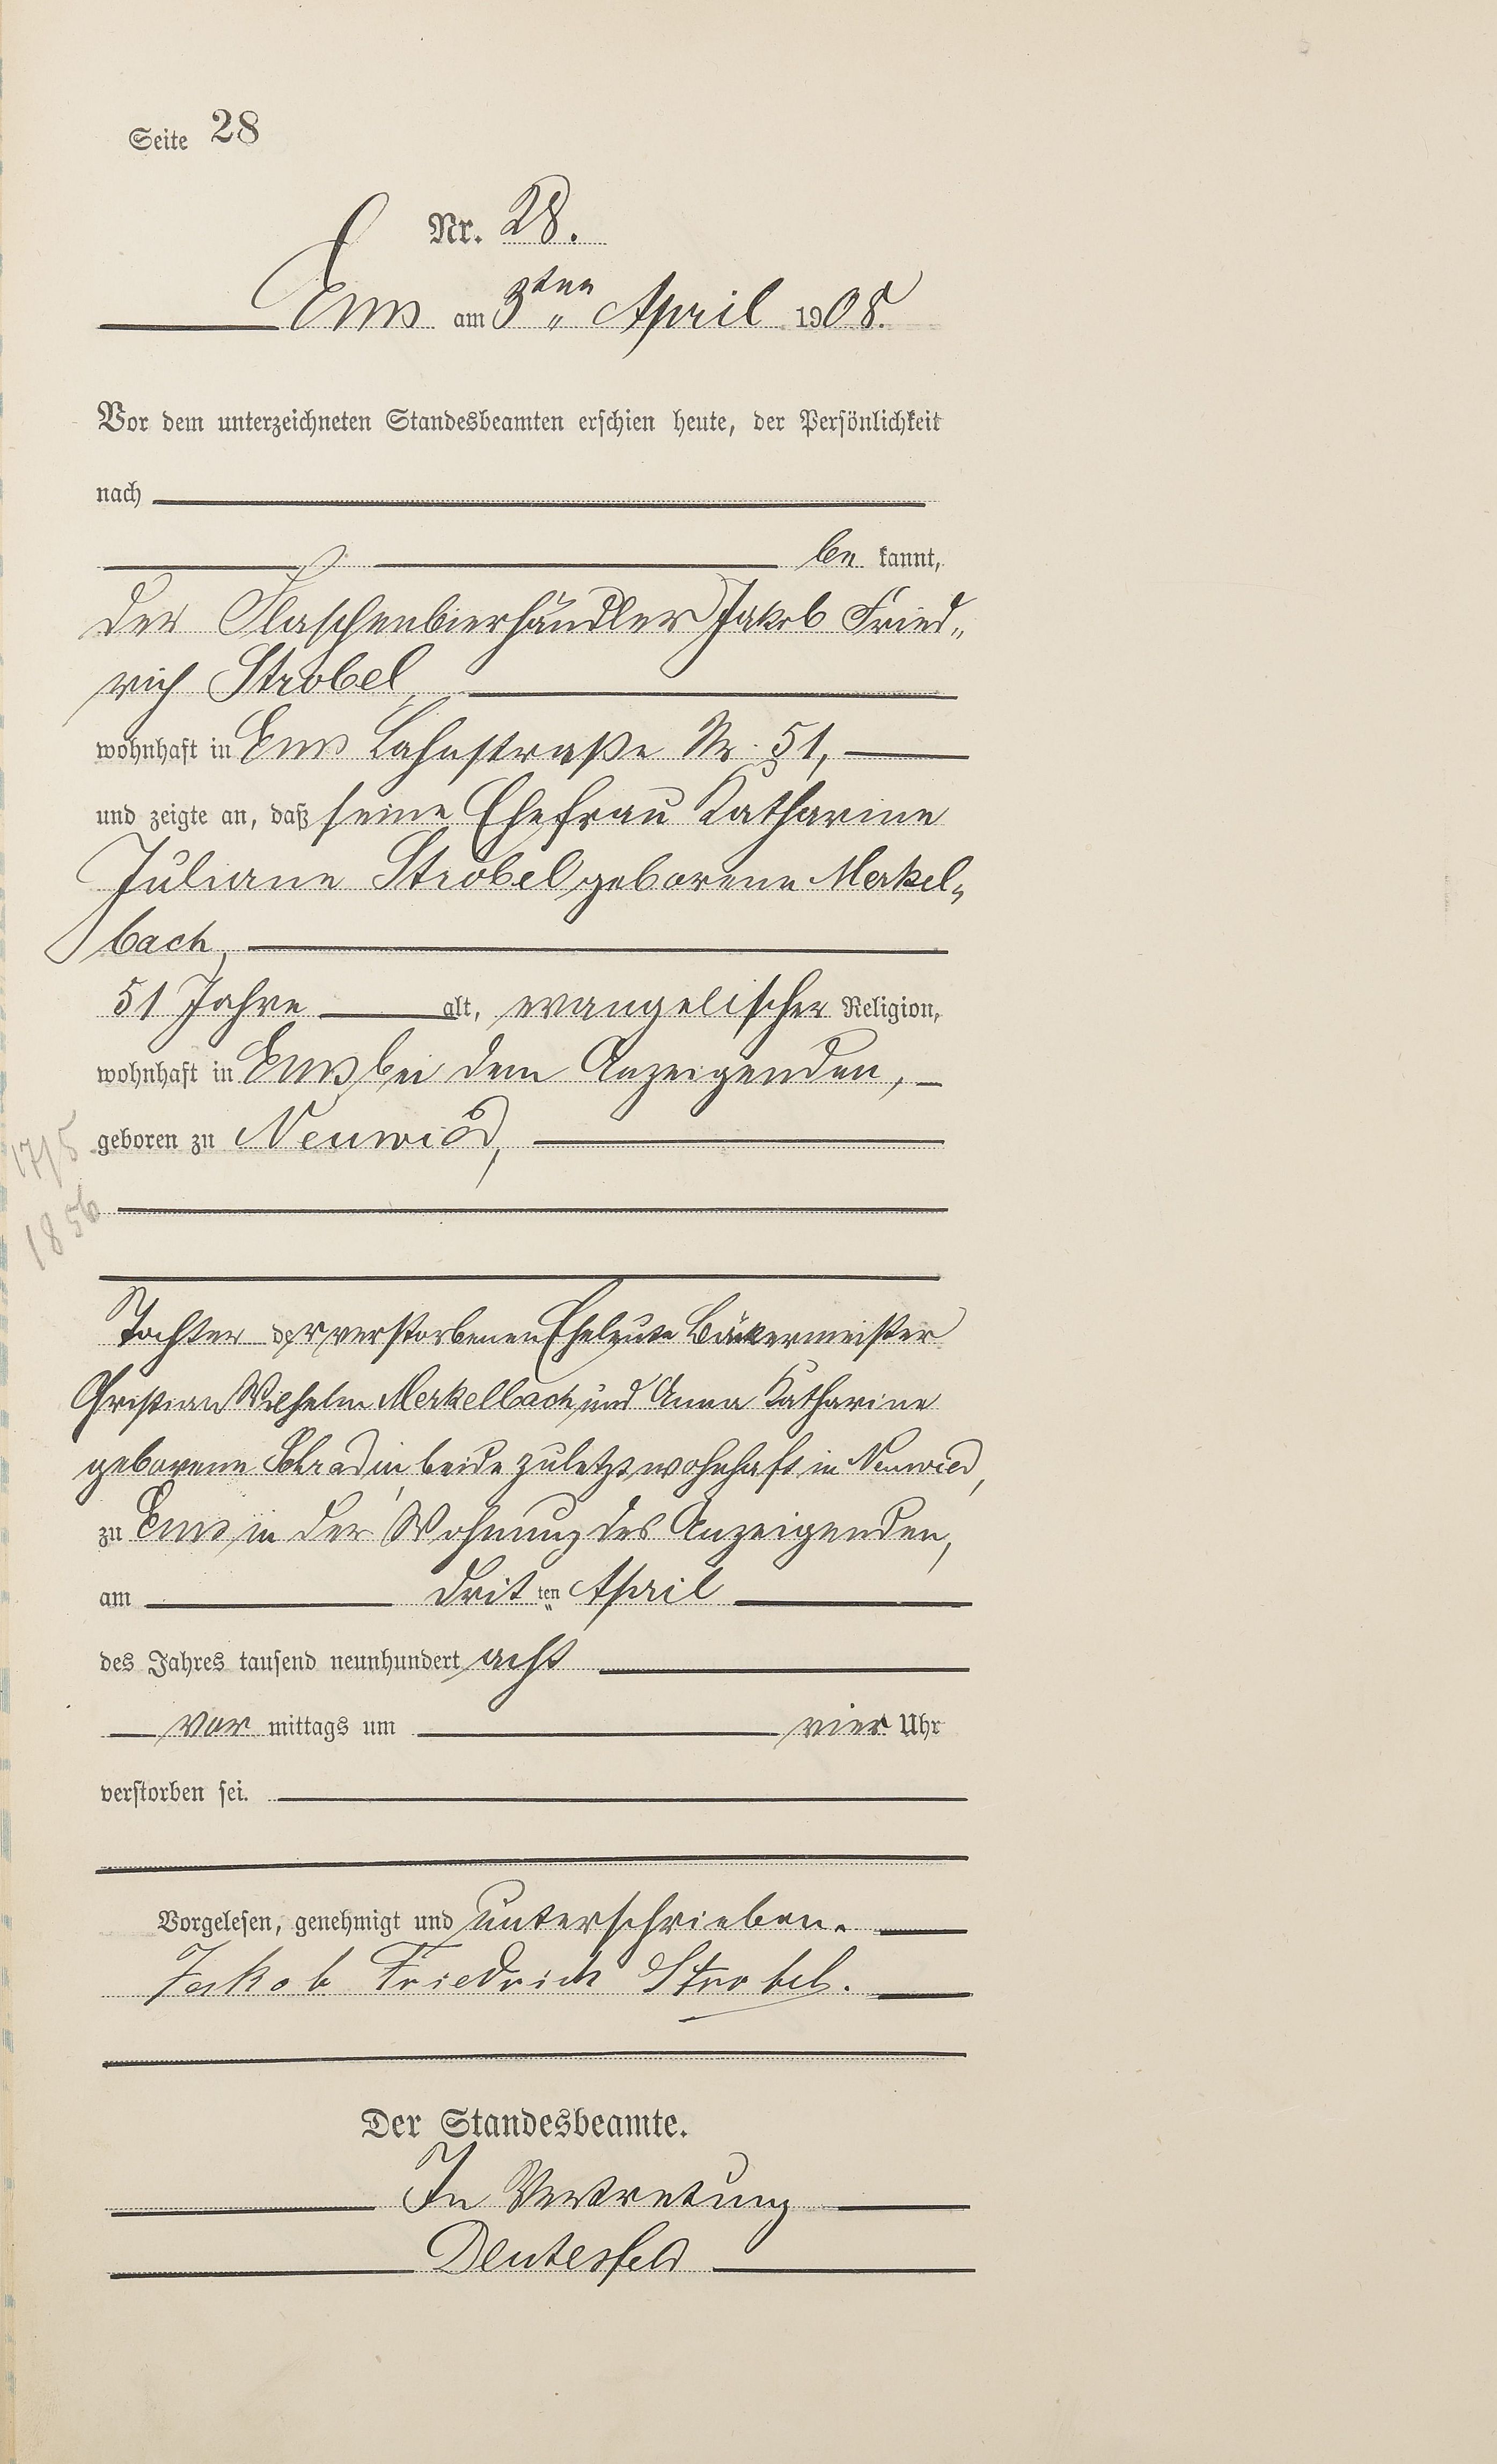 Seite 28
Nr. 28.
Ems am 3ten April 1908.
Vor dem unterzeichneten Standesbeamten erschien heute, der Persönlichkeit
nach
be kannt,
der Flaschenbierhändler Jakob Fried„
rich Strobel,
wohnhaft in Ems Lahnstraße Nr. 51,
und zeigte an, daß seine Ehefrau Katharine
Juliane Strobel geborene Merkel„
bach,
51 Jahre alt, evangelischer Religion,
wohnhaft in Ems bei dem Anzeigenden,
geboren zu Neuwied,
17/5
1856
Tochter der verstorbenen Eheleute Bäckermeister
Christian Wilhelm Merkelbach und Anna Katharine
geborene Schradin, beide zuletzt wohnhaft in Neuwied,
zu Ems in der Wohnung des Anzeigenden,
am dritten April
des Jahres tausend neunhundert acht
vor mittags um vier Uhr
verstorben sei.
Vorgelesen, genehmigt und unterschrieben.
Jakob Friedrich Strobel.
Der Standesbeamte.
In Vertretung
Deutesfeld